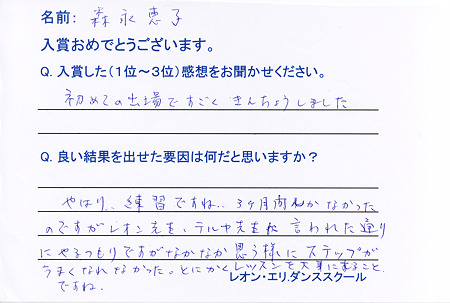 名前: 森永恵子
入賞おめでとうございます。
Q. 入賞した(1位～3位)感想をお聞かせください。
初めての出場ですごくきんちょうしました
Q. 良い結果を出せた要因は何だと思いますか?
やはり、練習ですね.. 3ヶ月しかなかった
のですがレオン先生、テルヤ先生に言われた通り
にやるつもりですがなかなか思う様にステップが
うまくなれなかった。とにかくレッスンを大事にすること
ですね.
レオン・エリ.ダンススクール